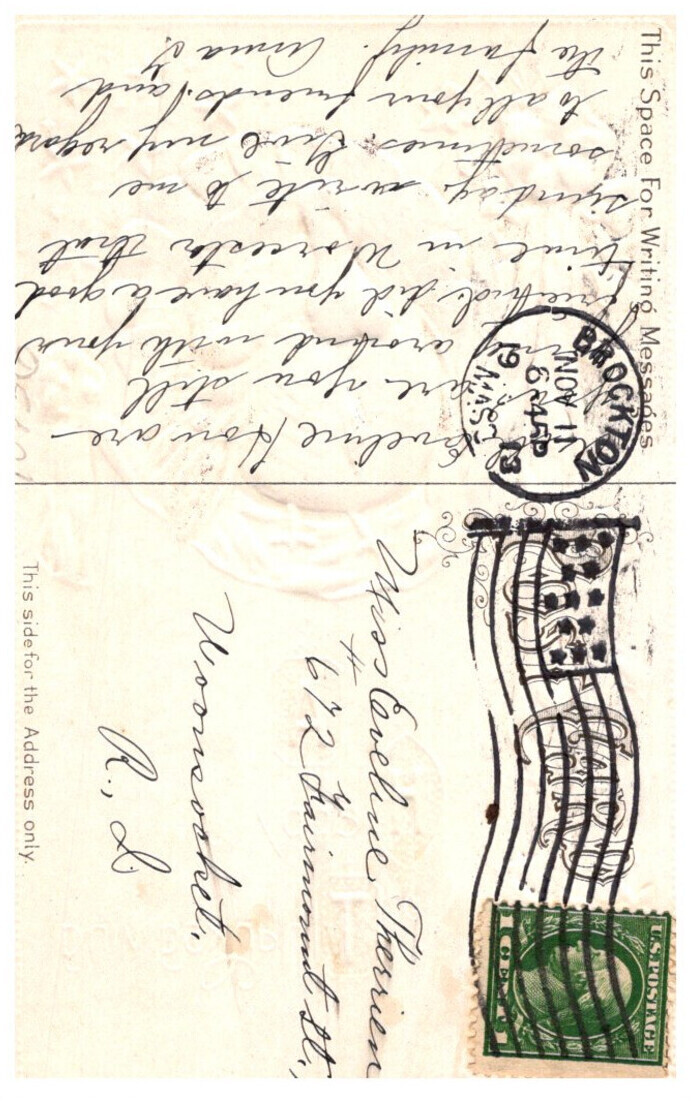 This Space For Writing Messages
Eveline How are
are you still
around with your
friend. did you have a good
time in Worcester that
sunday. write to me
sometimes Give my regard
to all your friends. and
the family. Anna
BROCKTON
NOV 11
6-45P
19 13
MASS.
POST CARD
U.S. POSTAGE
1 CENT 1
Miss Eveline Therrien
# 672 Fairmount St.,
Woonsocket,
R. I.
This side for the Address only.